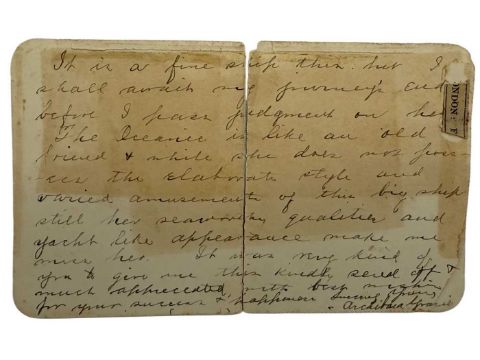 It is a fine ship this but I
shall await my journey's end
before I pass judgment on her.
The Oceanic is like an old
friend & while she does not poss-
ess the elaborate style and
varied amusements of this big ship
still her seaworthy qualities and
yacht like appearance make me
miss her. It was very kind of
you to give me this kindly send off &
much appreciated, with best wishes
for your success & happiness Sincerely yours
Archibald Gracie
ONDON: F